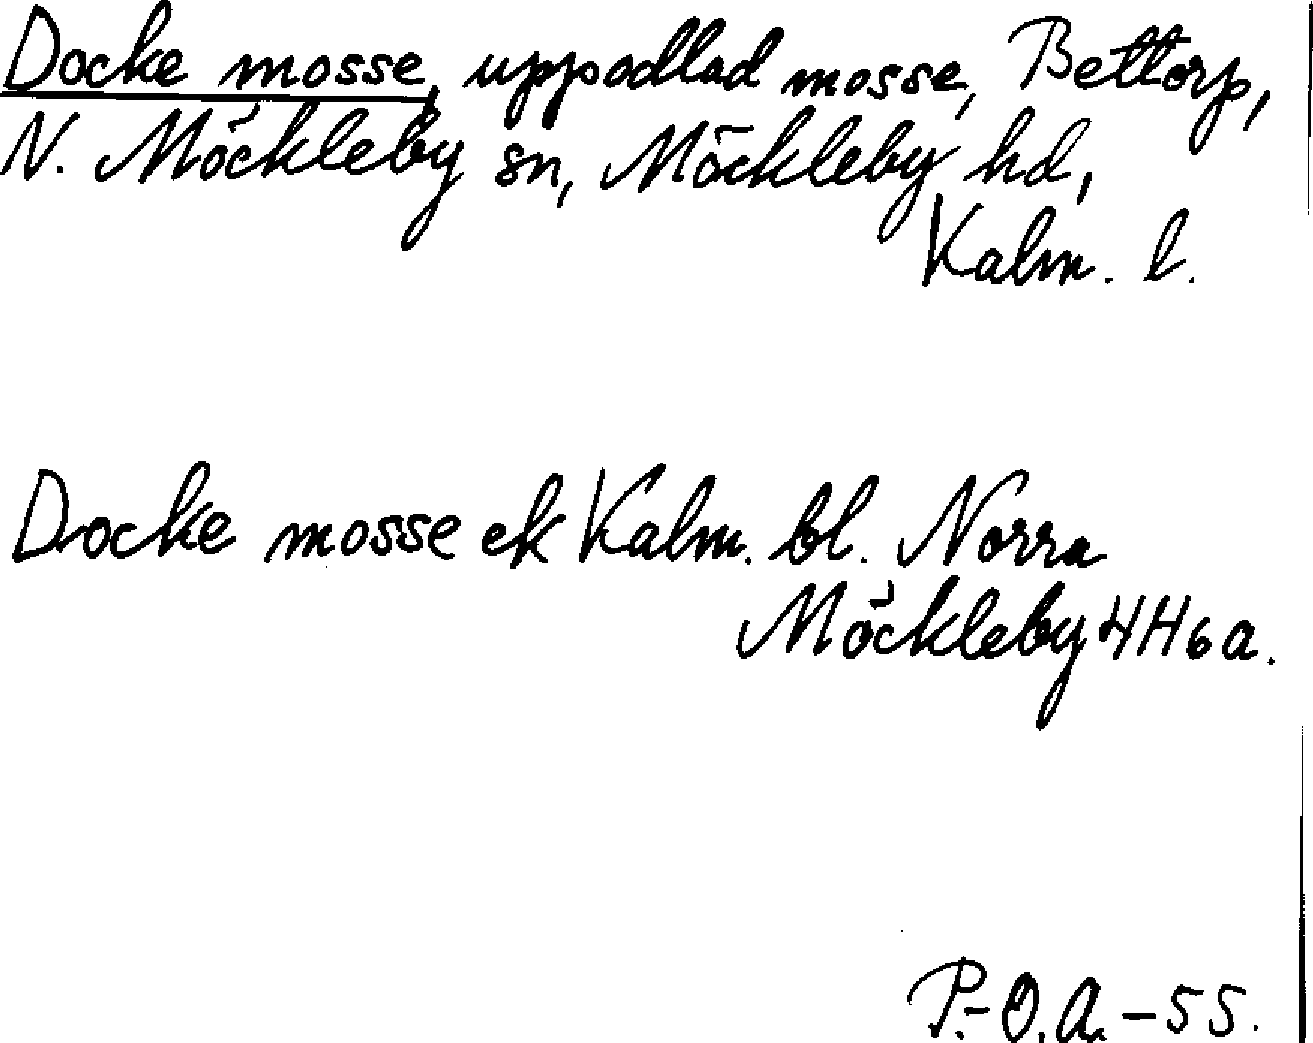 Docke mosse, uppodlad mosse, Bettorp,
N. Möckleby sn, Möckleby hd,
Kalm. l.
Docke mosse ek Kalm. bl. Norra
Möckleby 4H6a.
P.-O.A.-55.